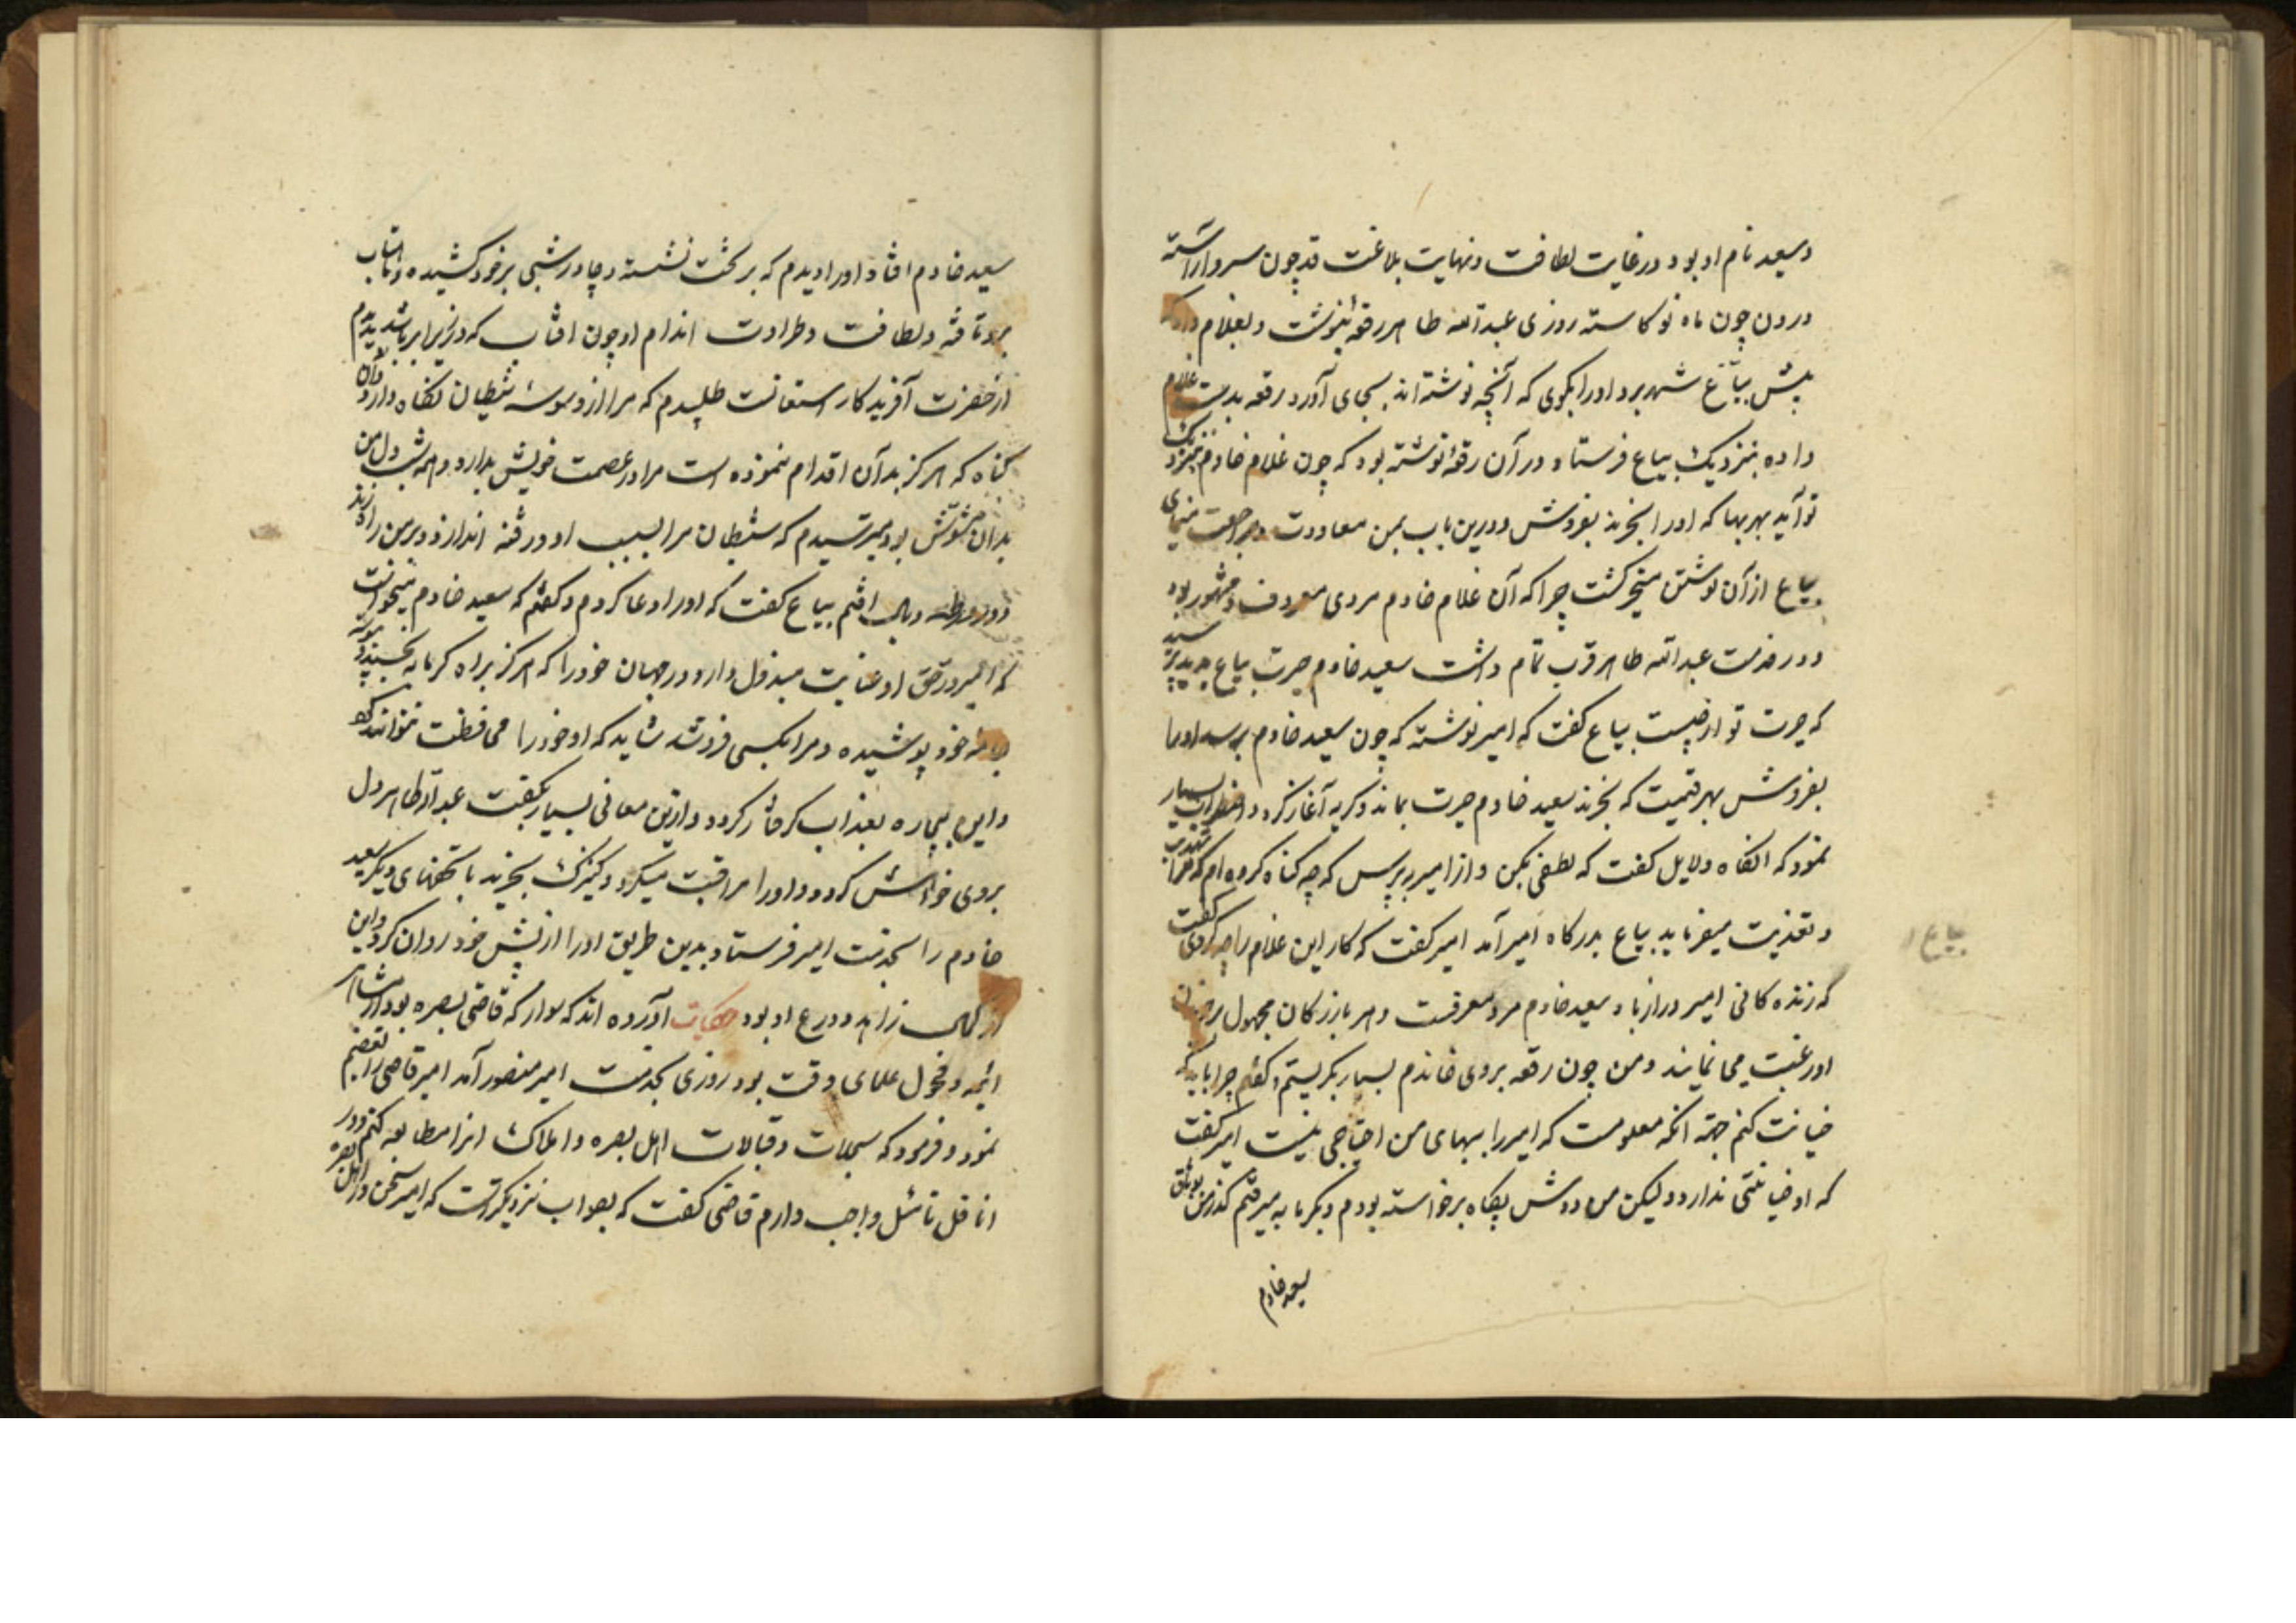 وسعید نام او بود در غایت لطافت و نهایت بلاغت قد چون سرو آراسته
و روی چون ماه نو کاسته روزی عبدالله طاهر رقعه بنوشت و بغلام داد که
پیش بیاع شهر برد او را بگوی که آنچه نوشته اند بجای آورد رقعه بدست غلام
داده بنزدیک بیاع فرستاد در آن رقعه نوشته بود که چون غلام خادم بنزدیک
تو آید بهر بها که او را بخرند بفروش و درین باب بمن معاودت و مراجعت منمای
بیاع از آن نوشتن متحیر گشت چرا که آن غلام خادم مردی معروف و مشهور بود
و در خدمت عبدالله طاهر قرب تمام داشت سعید خادم حیرت بیاع بدید پرسید
که حیرت تو از چیست بیاع گفت که امیر نوشته که چون سعید خادم برسد او را
بفروش بهر قیمت که بخرند سعید خادم حیرت بماند و گریه آغاز کرد و اضطراب بسیار
نمود که انگاه دلایل گفت که لطفی بکن و از امیر بپرس که چه گناه کرده ام که مرا
و تعذیت میفرماید بیاع بدرگاه امیر آمد امیر گفت که کار این غلام را چه کردی گفت
که زنده کانی امیر دراز باد سعید خادم مرد معرفست و هر بازرکان مجهول
او رغبت می نمایند و من چون رقعه بروی خاندم بسیار بگریستم و گفتم چرا باید که
خیانت کنم جهة انکه معلومست که امیر را ببهای من احتیاجی نیست امیر گفت
که او خیانتی ندارد و لیکن من دوش پگاه برخاسته بودم و بگرمابه میرفتم گذر من بوثاق
سعید خادم
بیاع
سعید خادم افتاد او را دیدم که بر تخت نشسته و چادر شبی بر خود کشیده و آفتاب
برو تافته و لطافت و طراوت اندام او چون افتاب که در زیر ابر باشد بدیدم
از حضرت آفریدکار استعانت طلبیدم که مرا از وسوسهٔ شیطان نگاه دارد و از آن
گناه که هرگز بدآن اقدام ننموده است مرا در عصمت خویش بدارد و همه شب دل من
بدان مشوش بود میترسیدم که شیطان مرا بسبب او در فتنه اندازد و بر من راه زند
و در ورطه وبال افتم بیاع گفت که او را دعا کردم و گفتم که سعید خادم نمیخواست
که امیر در حق او عنایت مبذول دارد و در جهان خود را که هرگز براه گرمابه نخسپد و
جامه خود پوشیده و مرا بکسی فروشد شاید که او خود را محافظت نتواند کرد
و این بیچاره بعذاب گرفتار گردد و ازین معانی بسیار بگفت عبدالله طاهر دل
بروی خوش کرد و او را مراقبت میکرد و کنیزک بخرید با تحفهای دیگر سعید
خادم را بخدمت امیر فرستاد بدین طریق او را از پیش خود روان کرد و این
از کمال زهد و ورع او بود حکایت آورده اند که سوار که قاضی بصره بود از مشاهیر
ائیمه و فحول علمای وقت بود روزی بخدمت امیر منصور آمد امیر قاضی را تعظیم
نمود و فرمود که سجلات و قبالات اهل بصره و املاک انرا مطالعه کنم و در
انا قل تامل واجب دارم قاضی گفت که بصواب نزدیکتر انست که امیر سخن در اهل بصره